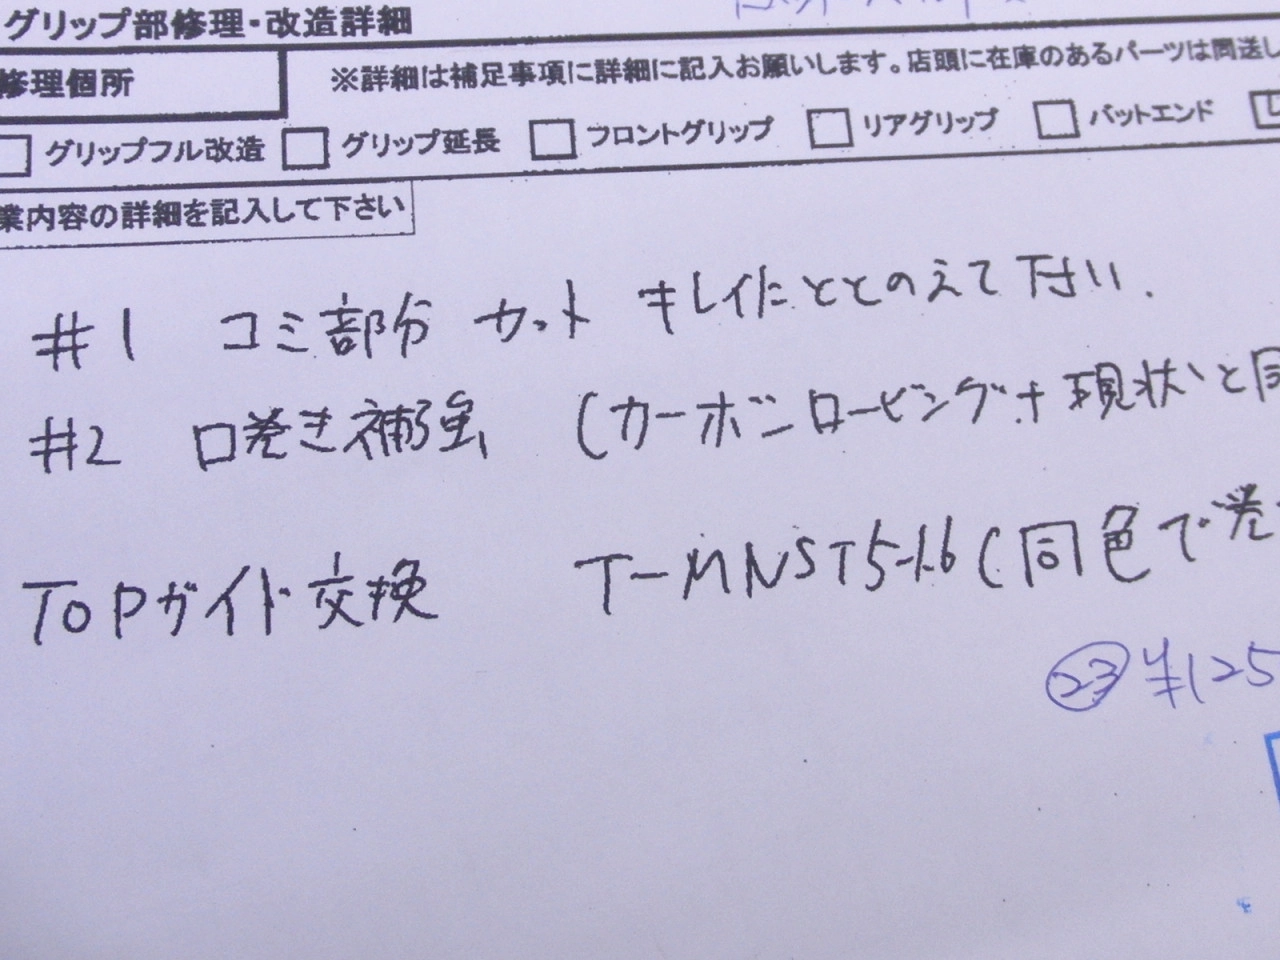 グリップ部修理・改造詳細
修理個所
※詳細は補足事項に詳細に記入お願いします。店頭に在庫のあるパーツは同送し
グリップフル改造 グリップ延長 フロントグリップ リアグリップ バットエンド
業内容の詳細を記入して下さい
#1 コミ部分 カット キレイにととのえて下さい.
#2 口巻き補強 (カーボンロービング+現状と同
TOPガイド交換 T-MNST5-1.6(同色で巻
㉓¥125